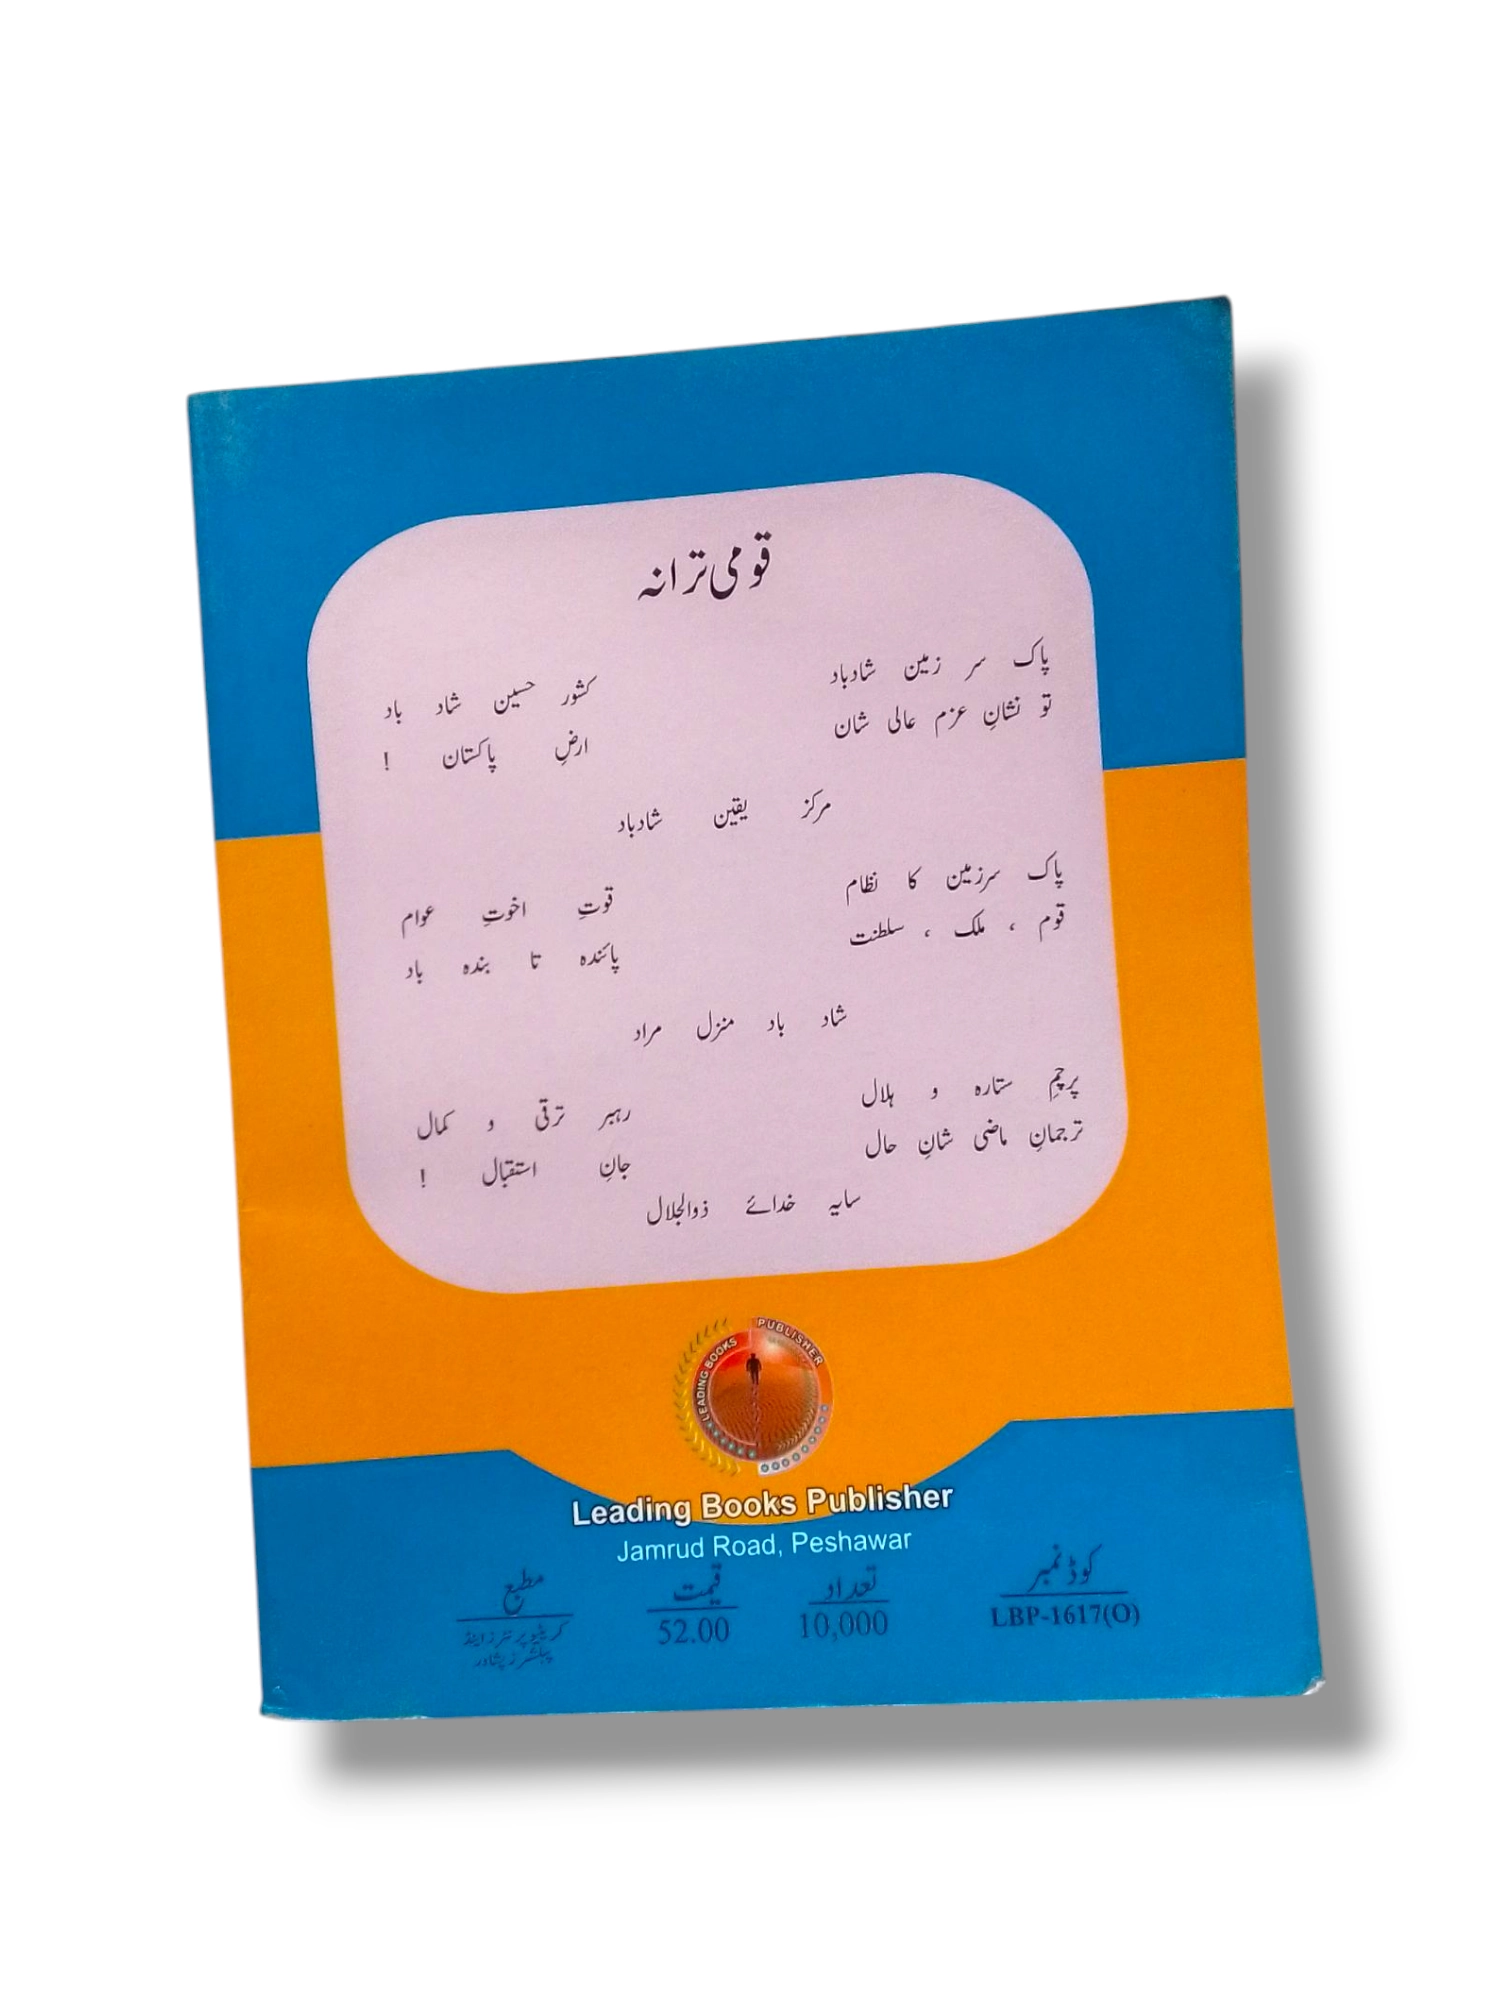 قومی ترانہ
پاک سر زمین شادباد کشور حسین شاد باد
تو نشانِ عزم عالی شان ارضِ پاکستان !
مرکز یقین شادباد
پاک سرزمین کا نظام قوتِ اخوتِ عوام
قوم ، ملک ، سلطنت پائندہ تا بندہ باد
شاد باد منزل مراد
پرچمِ ستارہ و ہلال رہبر ترقی و کمال
ترجمانِ ماضی شانِ حال جانِ استقبال !
سایہ خدائے ذوالجلال
LEADING BOOKS PUBLISHER
Leading Books Publisher
Jamrud Road, Peshawar
کوڈ نمبر تعداد قیمت مطبع
LBP-1617(O) 10,000 52.00 کریٹیو پرنٹرز اینڈ
پبلشرز پشاور